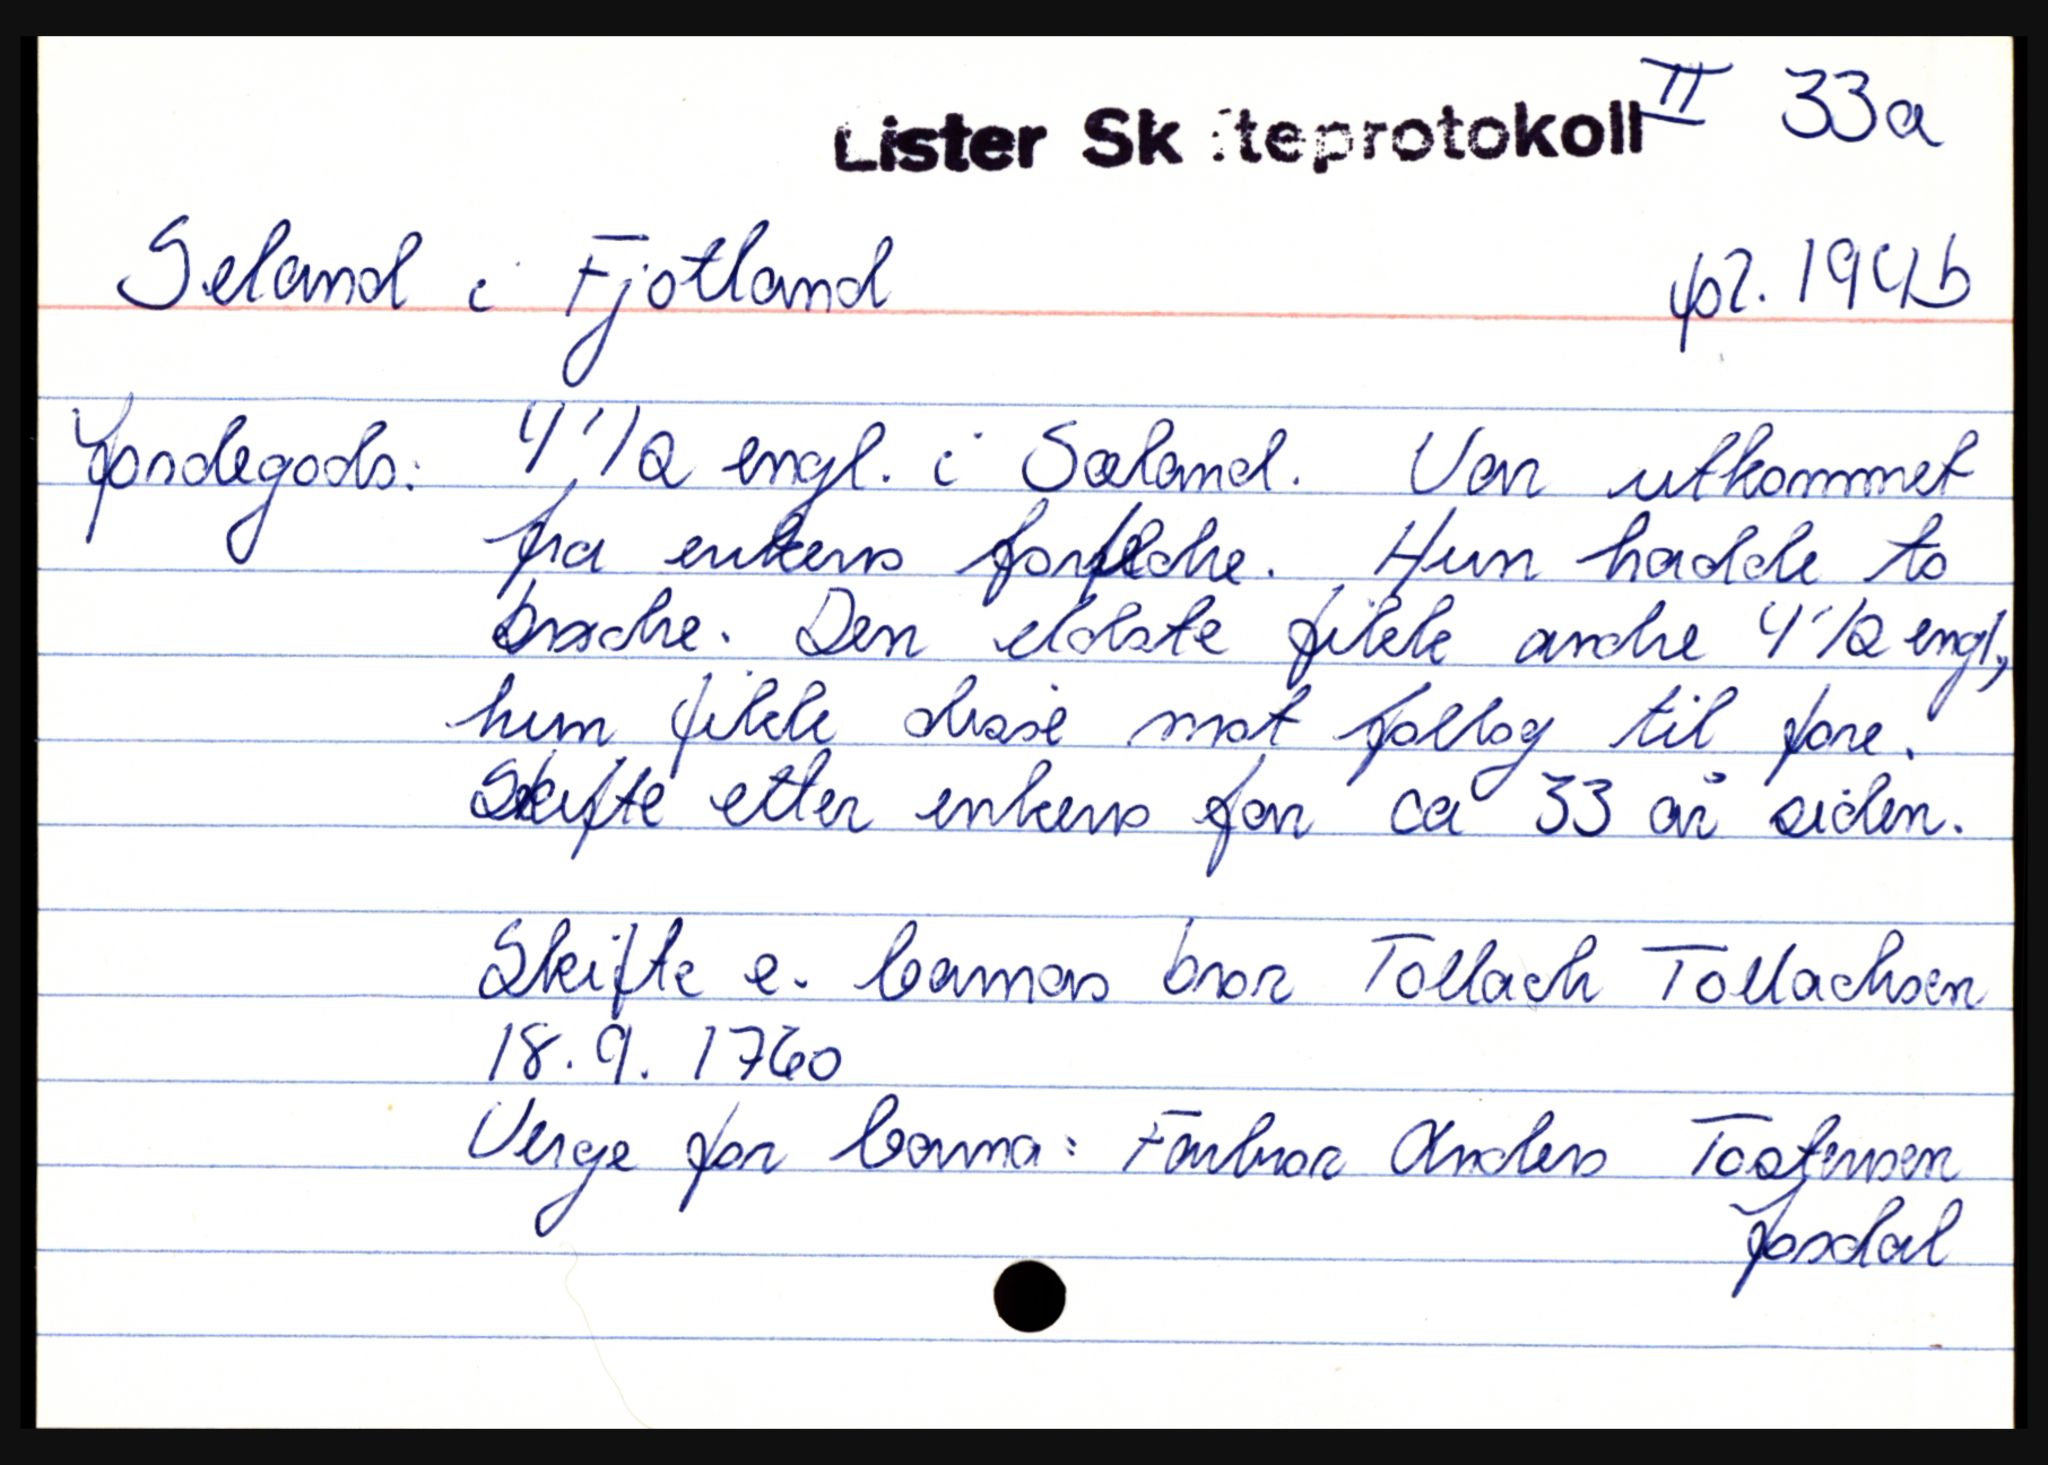 Lister Skifteprotokoll II 33a
Seland i Fjotland
fol. 194b
Jordegods: 4 1/2 engl. i Sæland. Var utkommet
fra enkens foreldre. Hun hadde to
brødre. Den eldste fikk andre 4 1/2 engl,
hun fikk disse mot føllog til fore.
Skifte etter enkens far ca 33 år siden.
Skifte e. barnas bror Tollach Tollachsen
18.9. 1760
Verge for barna: Farbror Anders Tostensen
Josdal